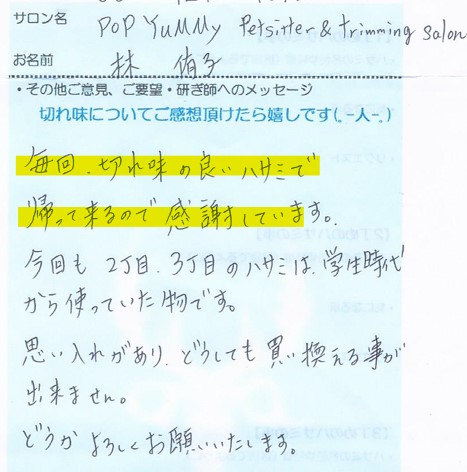 サロン名 POP YUMMY Petsitter & trimming salon
お名前 林 侑子
・その他ご意見、ご要望・研ぎ師へのメッセージ
切れ味についてご感想頂けたら嬉しです(｡-人-｡)
毎回、切れ味の良いハサミで
帰って来るので感謝しています。
今回も2丁目、3丁目のハサミは、学生時代
から使っていた物です。
思い入れがあり、どうしても買い換える事が
出来ません。
どうかよろしくお願いいたします。